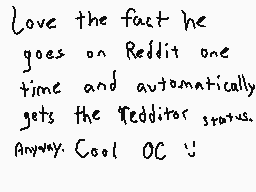 Love the fact he
goes on Reddit one
time and automatically
gets the redditor status.
Anyway. Cool OC :)